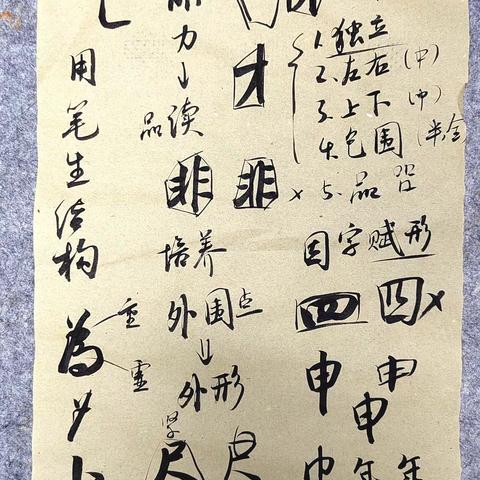 用笔生结构
為
重
力
↓
品读
非 非 ×
培养
外围点
↓
外形
尺 尺
才
1.独立
2.左右（中）
3.上下（中）
4.包围（半全）
5.品
因字赋形
四 四 ×
申 申
申
年 年